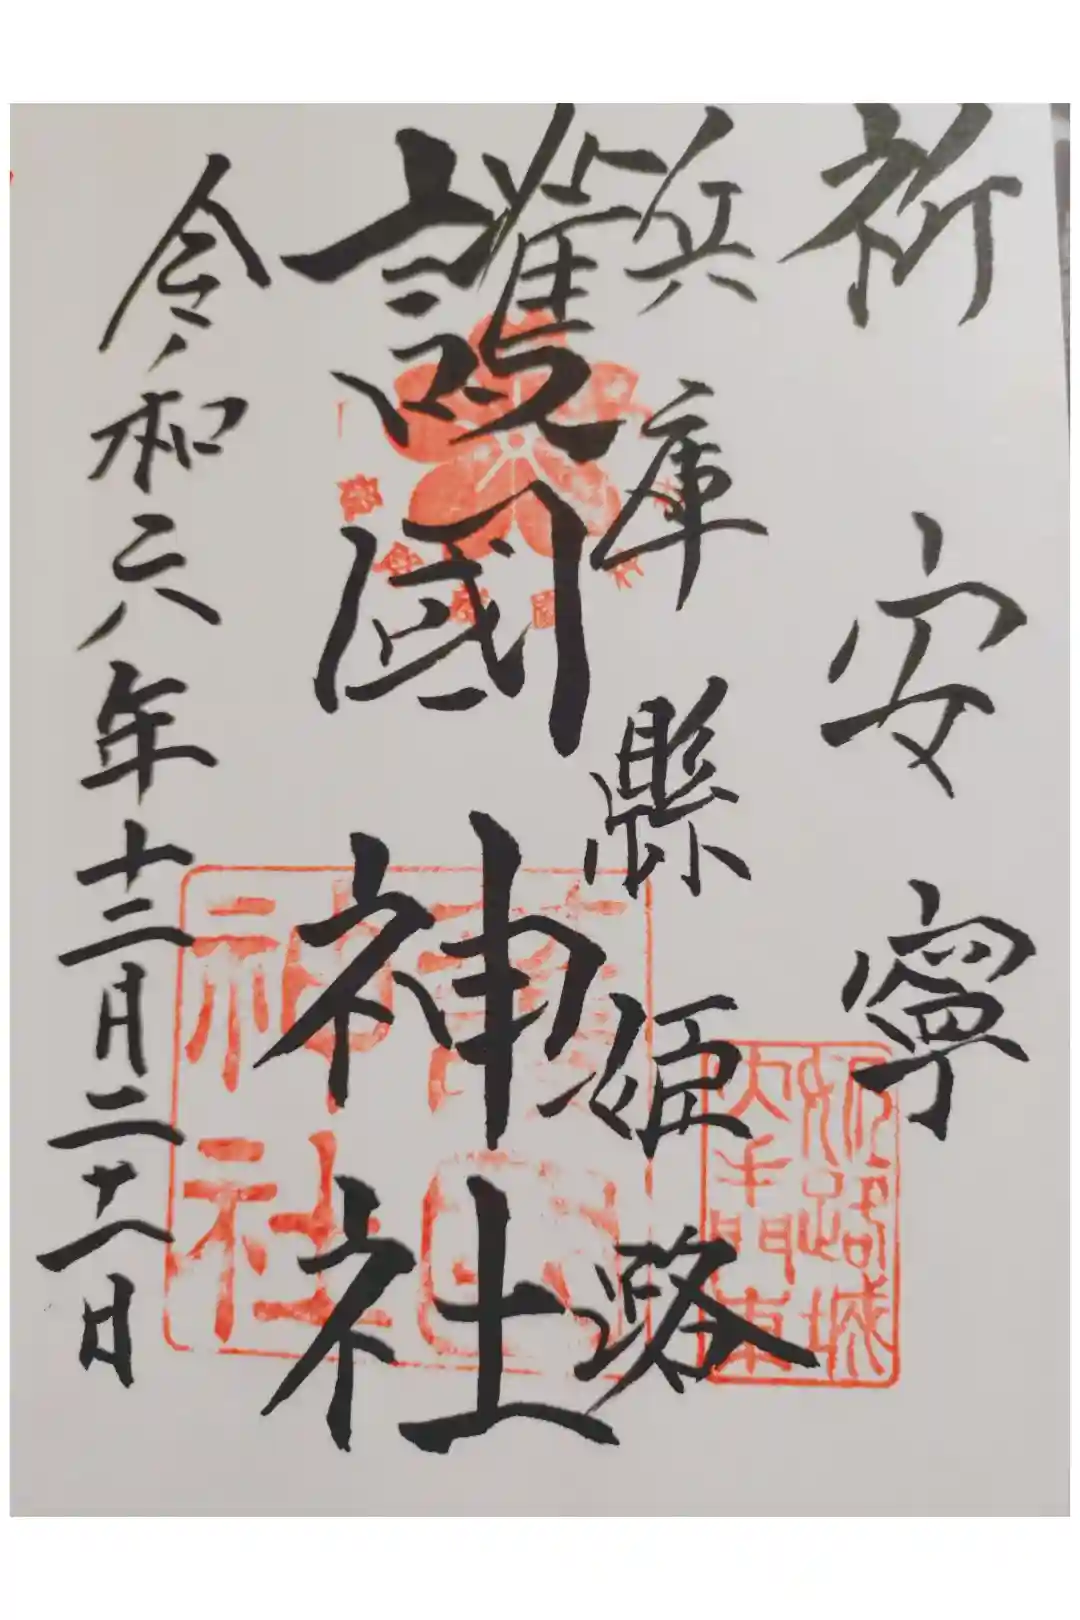 祈安寧
兵庫縣姫路
護國神社
令和六年十二月二十八日
姫路城
大手門東
護國
神社